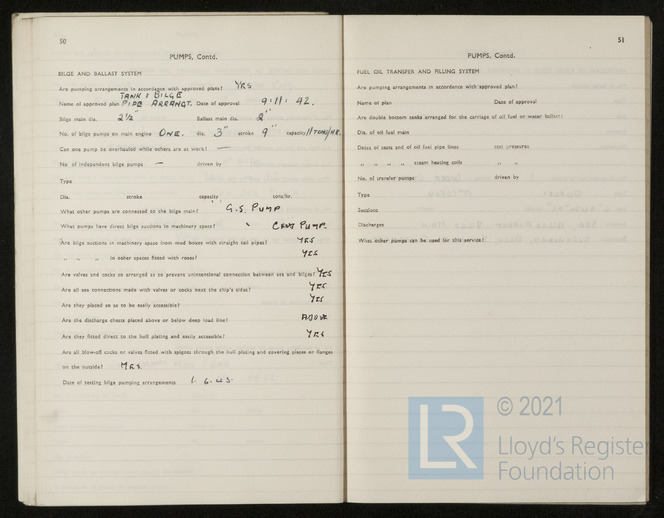 50
PUMPS, Contd.
BILGE AND BALLAST SYSTEM
Are pumping arrangements in accordance with approved plans? YES
TANK & BILGE
Name of approved plan PIPE ARRANGT. Date of approval 9:11: 42.
Bilge main dia. 2½" Ballast main dia. 2"
No. of bilge pumps on main engine ONE. dia. 3" stroke 9" capacity 11 TONS/HR.
Can one pump be overhauled while others are at work? —
No. of independent bilge pumps — driven by
Type
Dia. stroke capacity tons/hr.
What other pumps are connected to the bilge main? G.S. PUMP
What pumps have direct bilge suctions in machinery space? " CENT PUMP.
Are bilge suctions in machinery space from mud boxes with straight tail pipes? YES
„ „ „ in other spaces fitted with roses? YES
Are valves and cocks so arranged as to prevent unintentional connection between sea and bilges? YES
Are all sea connections made with valves or cocks next the ship's sides? YES
Are they placed so as to be easily accessible? YES
Are the discharge chests placed above or below deep load line? ABOVE
Are they fitted direct to the hull plating and easily accessible? YES
Are all blow-off cocks or valves fitted with spigots through the hull plating and covering plates or flanges
on the outside?
Date of testing bilge pumping arrangements 1. 6. 43.
51
PUMPS, Contd.
FUEL OIL TRANSFER AND FILLING SYSTEM
Are pumping arrangements in accordance with approved plan?
Name of plan Date of approval
Are double bottom tanks arranged for the carriage of oil fuel or water ballast?
Dia. of oil fuel main
Dates of tests and of oil fuel pipe lines test pressures
„ „ „ „ steam heating coils „ „
No. of transfer pumps driven by
Type
Suctions
Discharges
What other pumps can be used for this service?
LR
© 2021
Lloyd's Register
Foundation